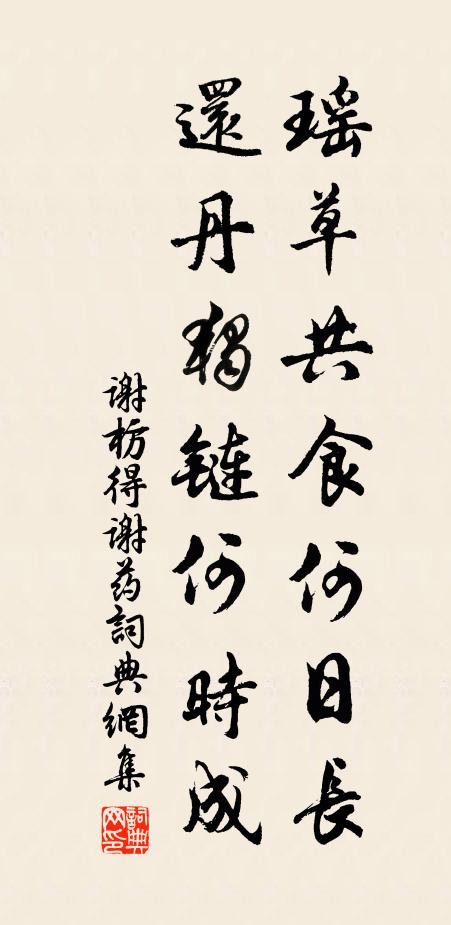 瑶草共食何日長
還丹獨鏈何時成
谢枋得谢药詞典網集
詞典网印